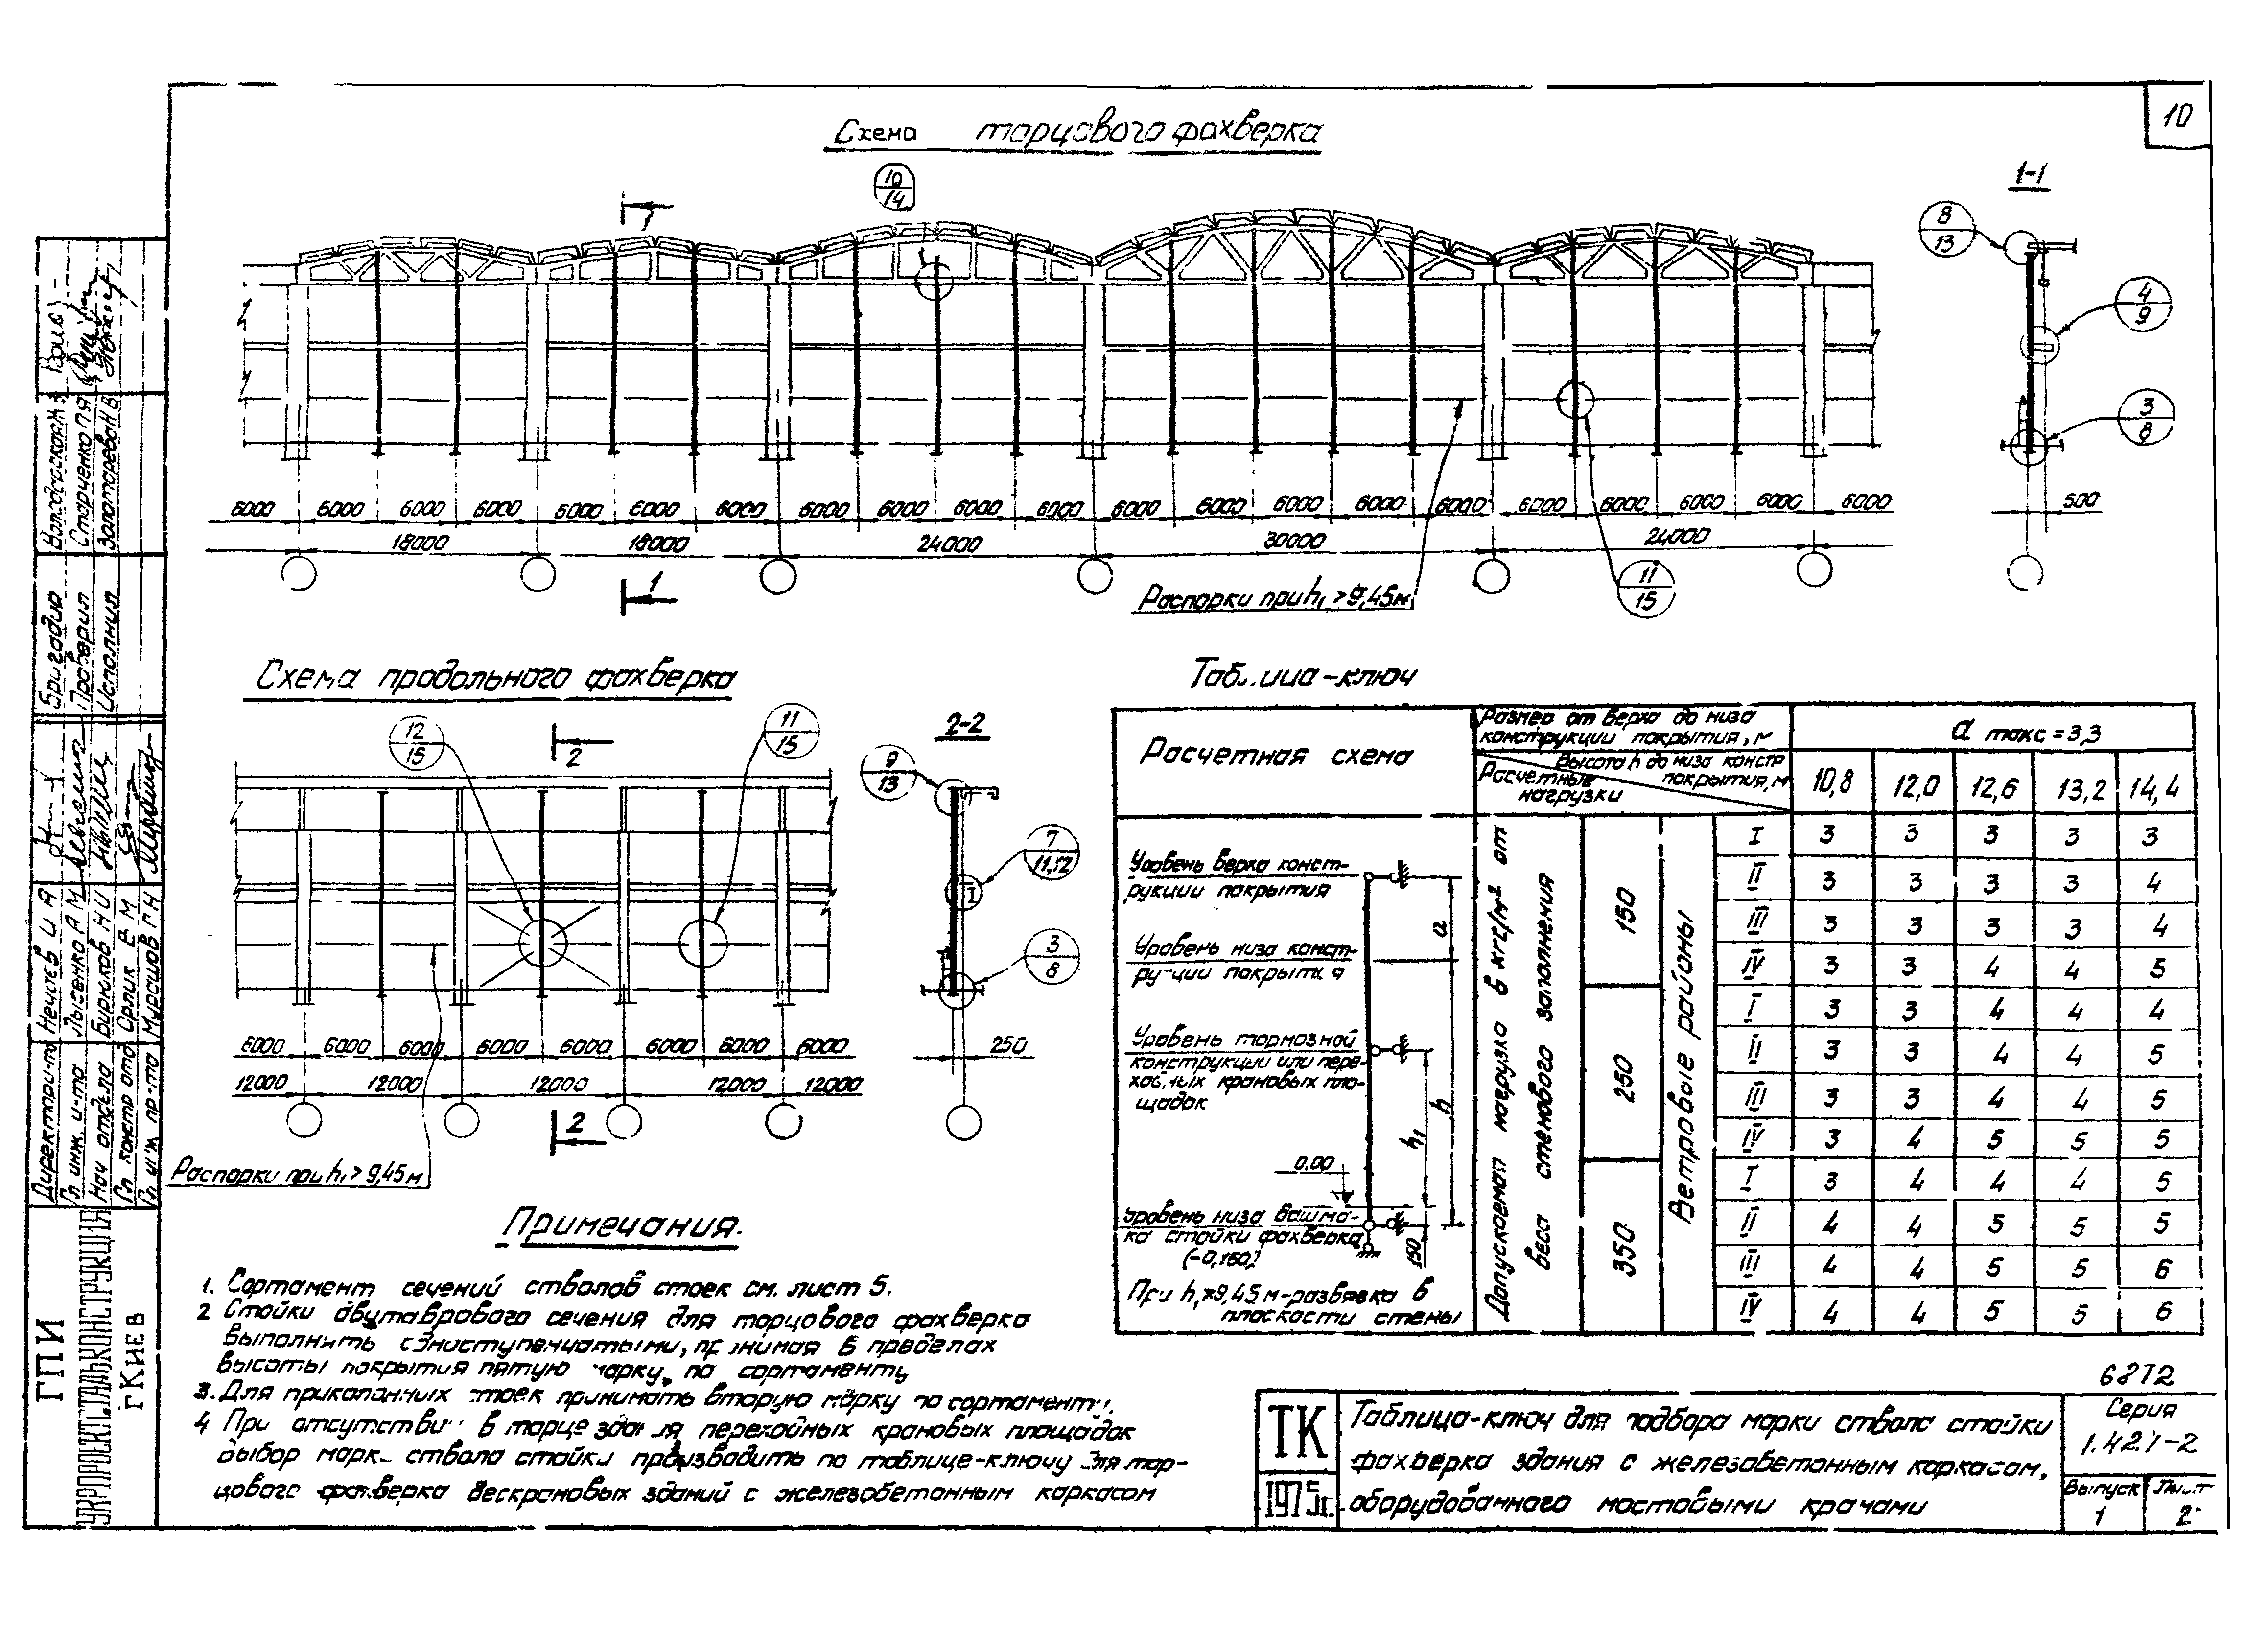 10
Схема торцового фахверка
10
14
1
1-1
8
13
4
9
3
8
6000 6000 6000 6000 6000 6000 6000 6000 6000 6000 6000 6000 6000 6000 6000 6000 6000 6000 6000 6000 6000
18000 18000 24000 30000 24000
500
1
Распорки при h₁ > 9,45м
11
15
Схема продольного фахверка
12
15
2
11
15
2-2
9
13
7
11,12
I
3
8
6000 6000 6000 6000 6000 6000 6000 6000
12000 12000 12000 12000 12000
250
2
Распорки при h₁ > 9,45 м
Таблица-ключ
Расчетная схема
Размер от верха до низа
конструкции покрытия, м
а макс = 3,3
Высота h до низа констр
покрытия, м
Расчетные
нагрузки
10,8 12,0 12,6 13,2 14,4
Допускаемая нагрузка в кгс/м² от
веса стенового заполнения
Ветровые районы
150
I 3 3 3 3 3
II 3 3 3 3 4
III 3 3 3 3 4
IV 3 3 4 4 5
250
I 3 3 4 4 4
II 3 3 4 4 5
III 3 3 4 4 5
IV 3 4 5 5 5
350
I 3 4 4 4 5
II 4 4 5 5 5
III 4 4 5 5 6
IV 4 4 5 5 6
Уровень верха конст-
рукции покрытия
Уровень низа конст-
рукции покрытия
Уровень тормозной
конструкции или пере-
ходных крановых пло-
щадок
0,00
Уровень низа башма-
ка стойки фахверка
(-0,150)
a
h
h₁
150
При h₁ > 9,45 м - развязка в
плоскости стены
Примечания.
1. Сортамент сечений стволов стоек см. лист 5.
2 Стойки двутаврового сечения для торцового фахверка
выполнить одноступенчатыми, принимая в пределах
высоты покрытия пятую марку по сортаменту
3. Для прикопанных стоек принимать вторую марку по сортаменту.
4 При отсутствии в торце здания переходных крановых площадок
выбор марки ствола стойки производить по таблице-ключу для тор-
цового фахверка бескрановых зданий с железобетонным каркасом
6872
ТК
1975г.
Таблица-ключ для подбора марки ствола стойки
фахверка здания с железобетонным каркасом,
оборудованного мостовыми кранами
Серия
1.427-2
Выпуск
1
Лист
2
Бригадир
Проверил Старченко
Исполнил
Директор и-та Нечаев И А
Гл инж. и-та Лысенко А М
Нач отдела Бирюков Н И
Гл констр отд Орлик В М
Гл. инж пр-та Мурашов Г Н
ГПИ
УКРПРОЕКТСТАЛЬКОНСТРУКЦИЯ
г Киев